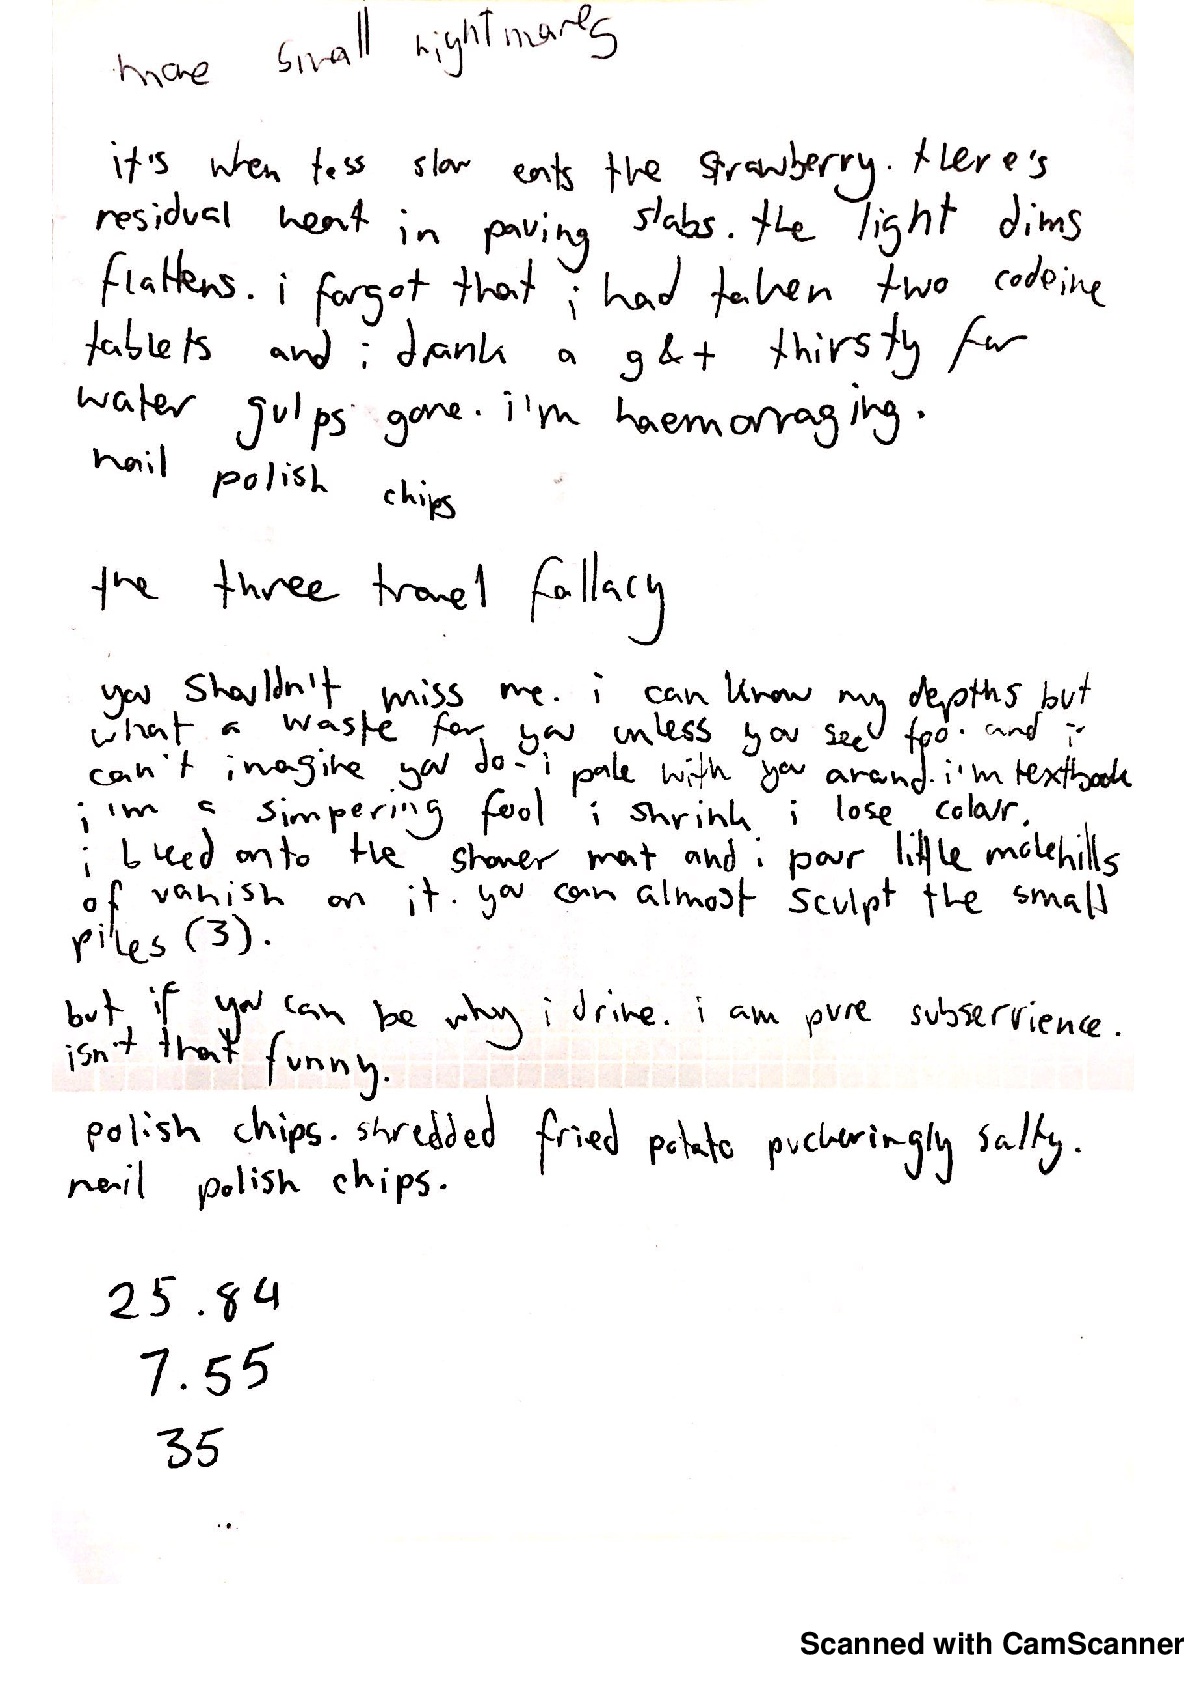 more small nightmares
it's when tess slow eats the strawberry. there's
residual heat in paving slabs. the light dims
flattens. i forgot that i had taken two codeine
tablets and i drank a g&t thirsty for
water gulps gone. i'm haemorraging.
nail polish chips
the three travel fallacy
you shouldn't miss me. i can know my depths but
what a waste for you unless you see too. and i
can't imagine you do - i pale with you around. i'm textbook
i'm a simpering fool i shrink i lose colour.
i bleed onto the shower mat and i pour little molehills
of vanish on it. you can almost sculpt the small
piles (3).
but if you can be why i drive. i am pure subservience.
isn't that funny.
polish chips. shredded fried potato puckeringly salty.
nail polish chips.
25.84
7.55
35
Scanned with CamScanner